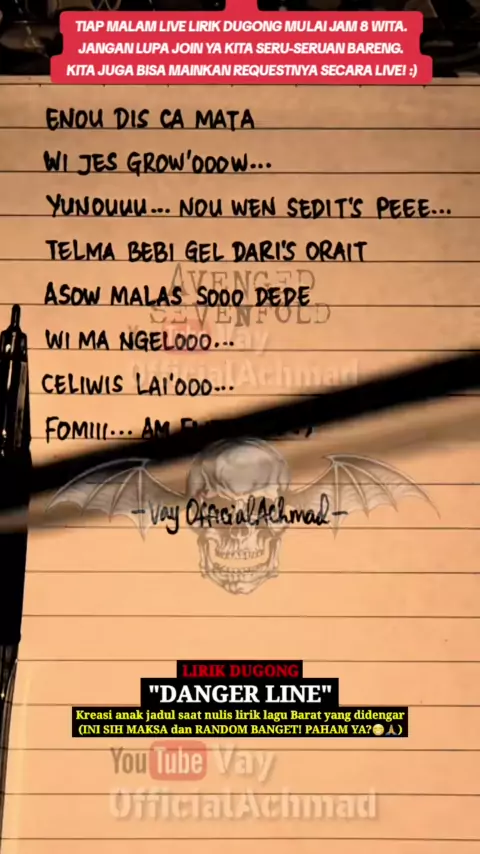 TIAP MALAM LIVE LIRIK DUGONG MULAI JAM 8 WITA.
JANGAN LUPA JOIN YA KITA SERU-SERUAN BARENG.
KITA JUGA BISA MAINKAN REQUESTNYA SECARA LIVE! :)
ENOU DIS CA MATA
WI JES GROW'OOOW...
YUNOUUU... NOU WEN SEDIT'S PEEE...
TELMA BEBI GEL DARI'S ORAIT
AVENGED
SEVENFOLD
ASOW MALAS SOOO DEDE
WI MA NGELOOO...
YouTube Vay
OfficialAchmad
CELIWIS LAI'OOO...
FOMIII... AM
-Vay OfficialAchmad-
LIRIK DUGONG
"DANGER LINE"
Kreasi anak jadul saat nulis lirik lagu Barat yang didengar
(INI SIH MAKSA dan RANDOM BANGET! PAHAM YA?😁🙏)
YouTube Vay
OfficialAchmad